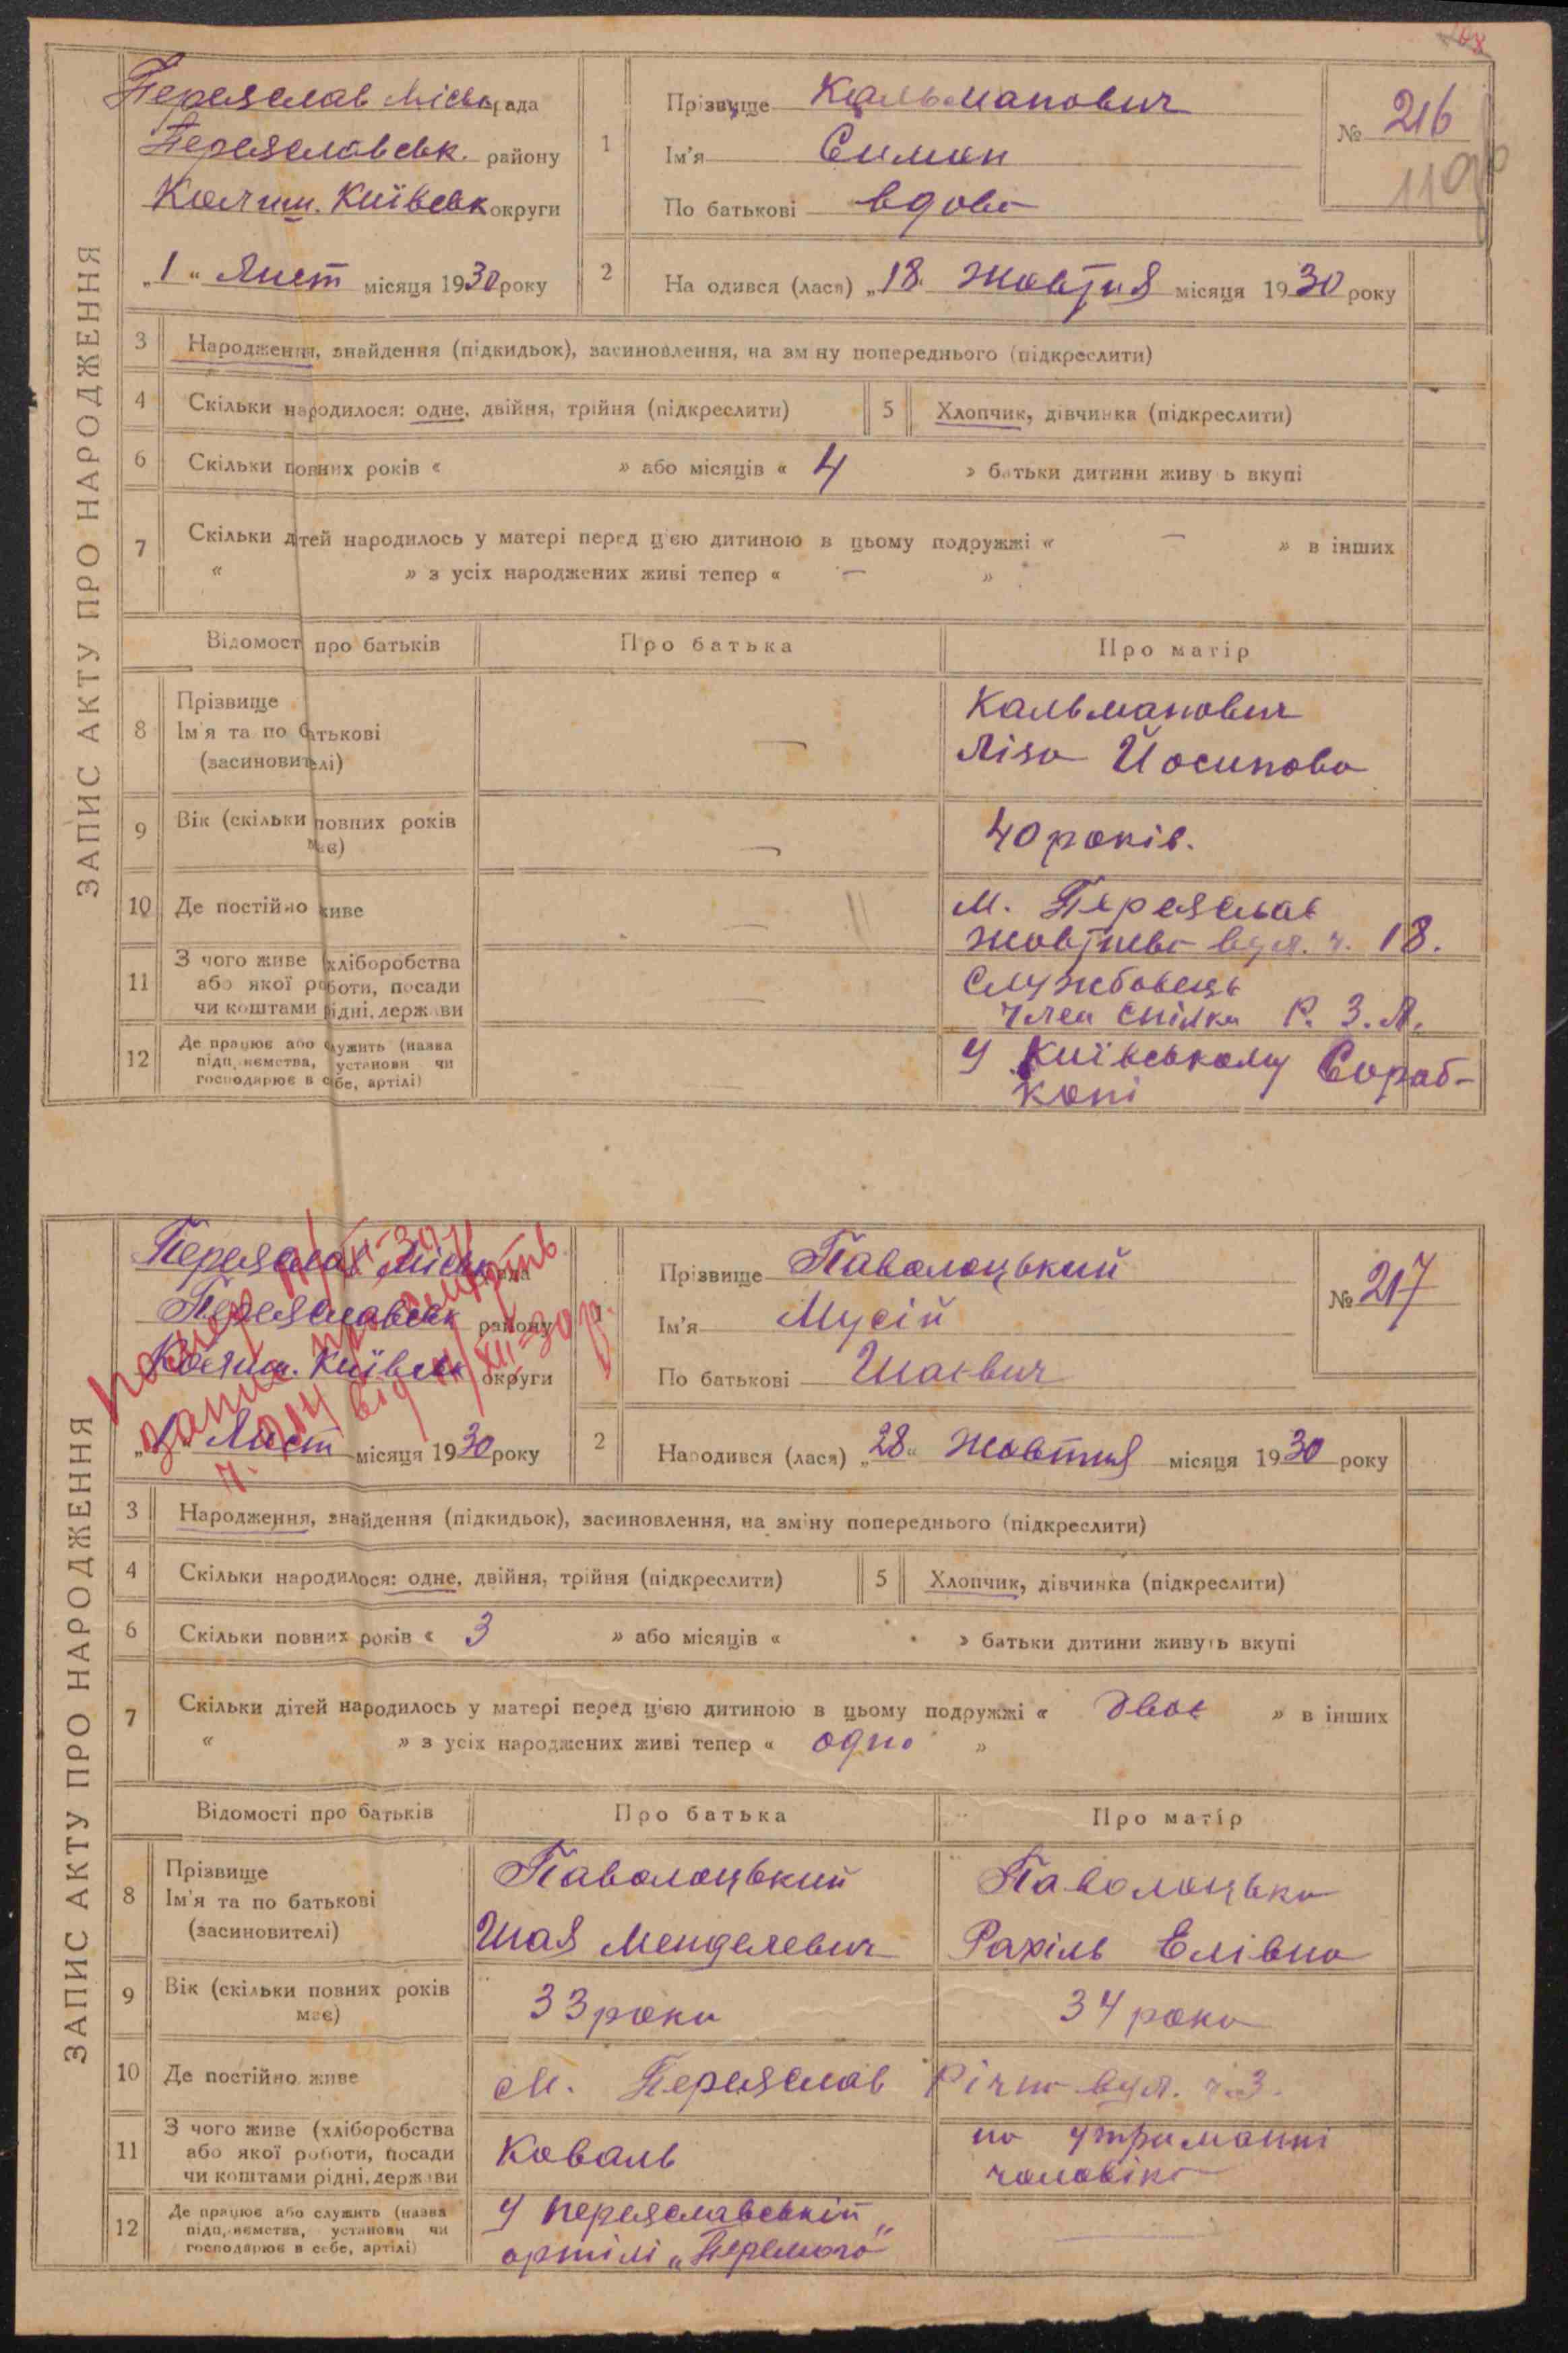 Переяслав Міськрада
Переяславськ. району
Колиш. Київськ округи
„1“ Лист місяця 1930 року
1
Прізвище Кальманович
Ім'я Симон
По батькові вдова
№ 216
2
На одився (лася) „18“ Жовтня місяця 1930 року
ЗАПИС АКТУ ПРО НАРОДЖЕННЯ
3 Народження, знайдення (підкидьок), засиновлення, на зміну попереднього (підкреслити)
4 Скільки народилося: одне, двійня, трійня (підкреслити) 5 Хлопчик, дівчинка (підкреслити)
6 Скільки повних років « » або місяців « 4 » батьки дитини живуть вкупі
7 Скільки дітей народилось у матері перед цією дитиною в цьому подружжі « — » в інших
« » з усіх народжених живі тепер « — »
Відомост про батьків Про батька Про матір
8 Прізвище
Ім'я та по батькові
(засиновителі)
—
Кальманович
Ліза Йосипова
9 Вік (скільки повних років
має)
—
40 років.
10 Де постійно живе
м. Переяслав
Жовтнева вул. ч. 18.
11 З чого живе (хліборобства
або якої роботи, посади
чи коштами рідні, держави
—
Службовець
член спілки Р. З. Л.
12 Де працює або служить (назва
підприємства, установи чи
господарює в себе, артілі)
—
У Київському Сораб-
копі
Переяслав Міськрада
Переяславськ району
Колиш. Київськ округи
„1“ Лист місяця 1930 року
помер
запис про смерть
ч. від /XII-30 р.
1
Прізвище Паволоцький
Ім'я Мусій
По батькові Шаєвич
№ 217
2
Народився (лася) „28“ Жовтня місяця 1930 року
ЗАПИС АКТУ ПРО НАРОДЖЕННЯ
3 Народження, знайдення (підкидьок), засиновлення, на зміну попереднього (підкреслити)
4 Скільки народилося: одне, двійня, трійня (підкреслити) 5 Хлопчик, дівчинка (підкреслити)
6 Скільки повних років « 3 » або місяців « » батьки дитини живуть вкупі
7 Скільки дітей народилось у матері перед цією дитиною в цьому подружжі « двоє » в інших
« » з усіх народжених живі тепер « одно »
Відомості про батьків Про батька Про матір
8 Прізвище
Ім'я та по батькові
(засиновителі)
Паволоцький
Шая Менделевич
Паволоцька
Рахіль Елівна
9 Вік (скільки повних років
має)
33 роки
34 роки
10 Де постійно живе
м. Переяслав Річна вул. ч. 3.
11 З чого живе (хліборобства
або якої роботи, посади
чи коштами рідні, держави
Коваль
на утриманні
чоловіка
12 Де працює або служить (назва
підприємства, установи чи
господарює в себе, артілі)
У переяславській
артілі „Перемога“